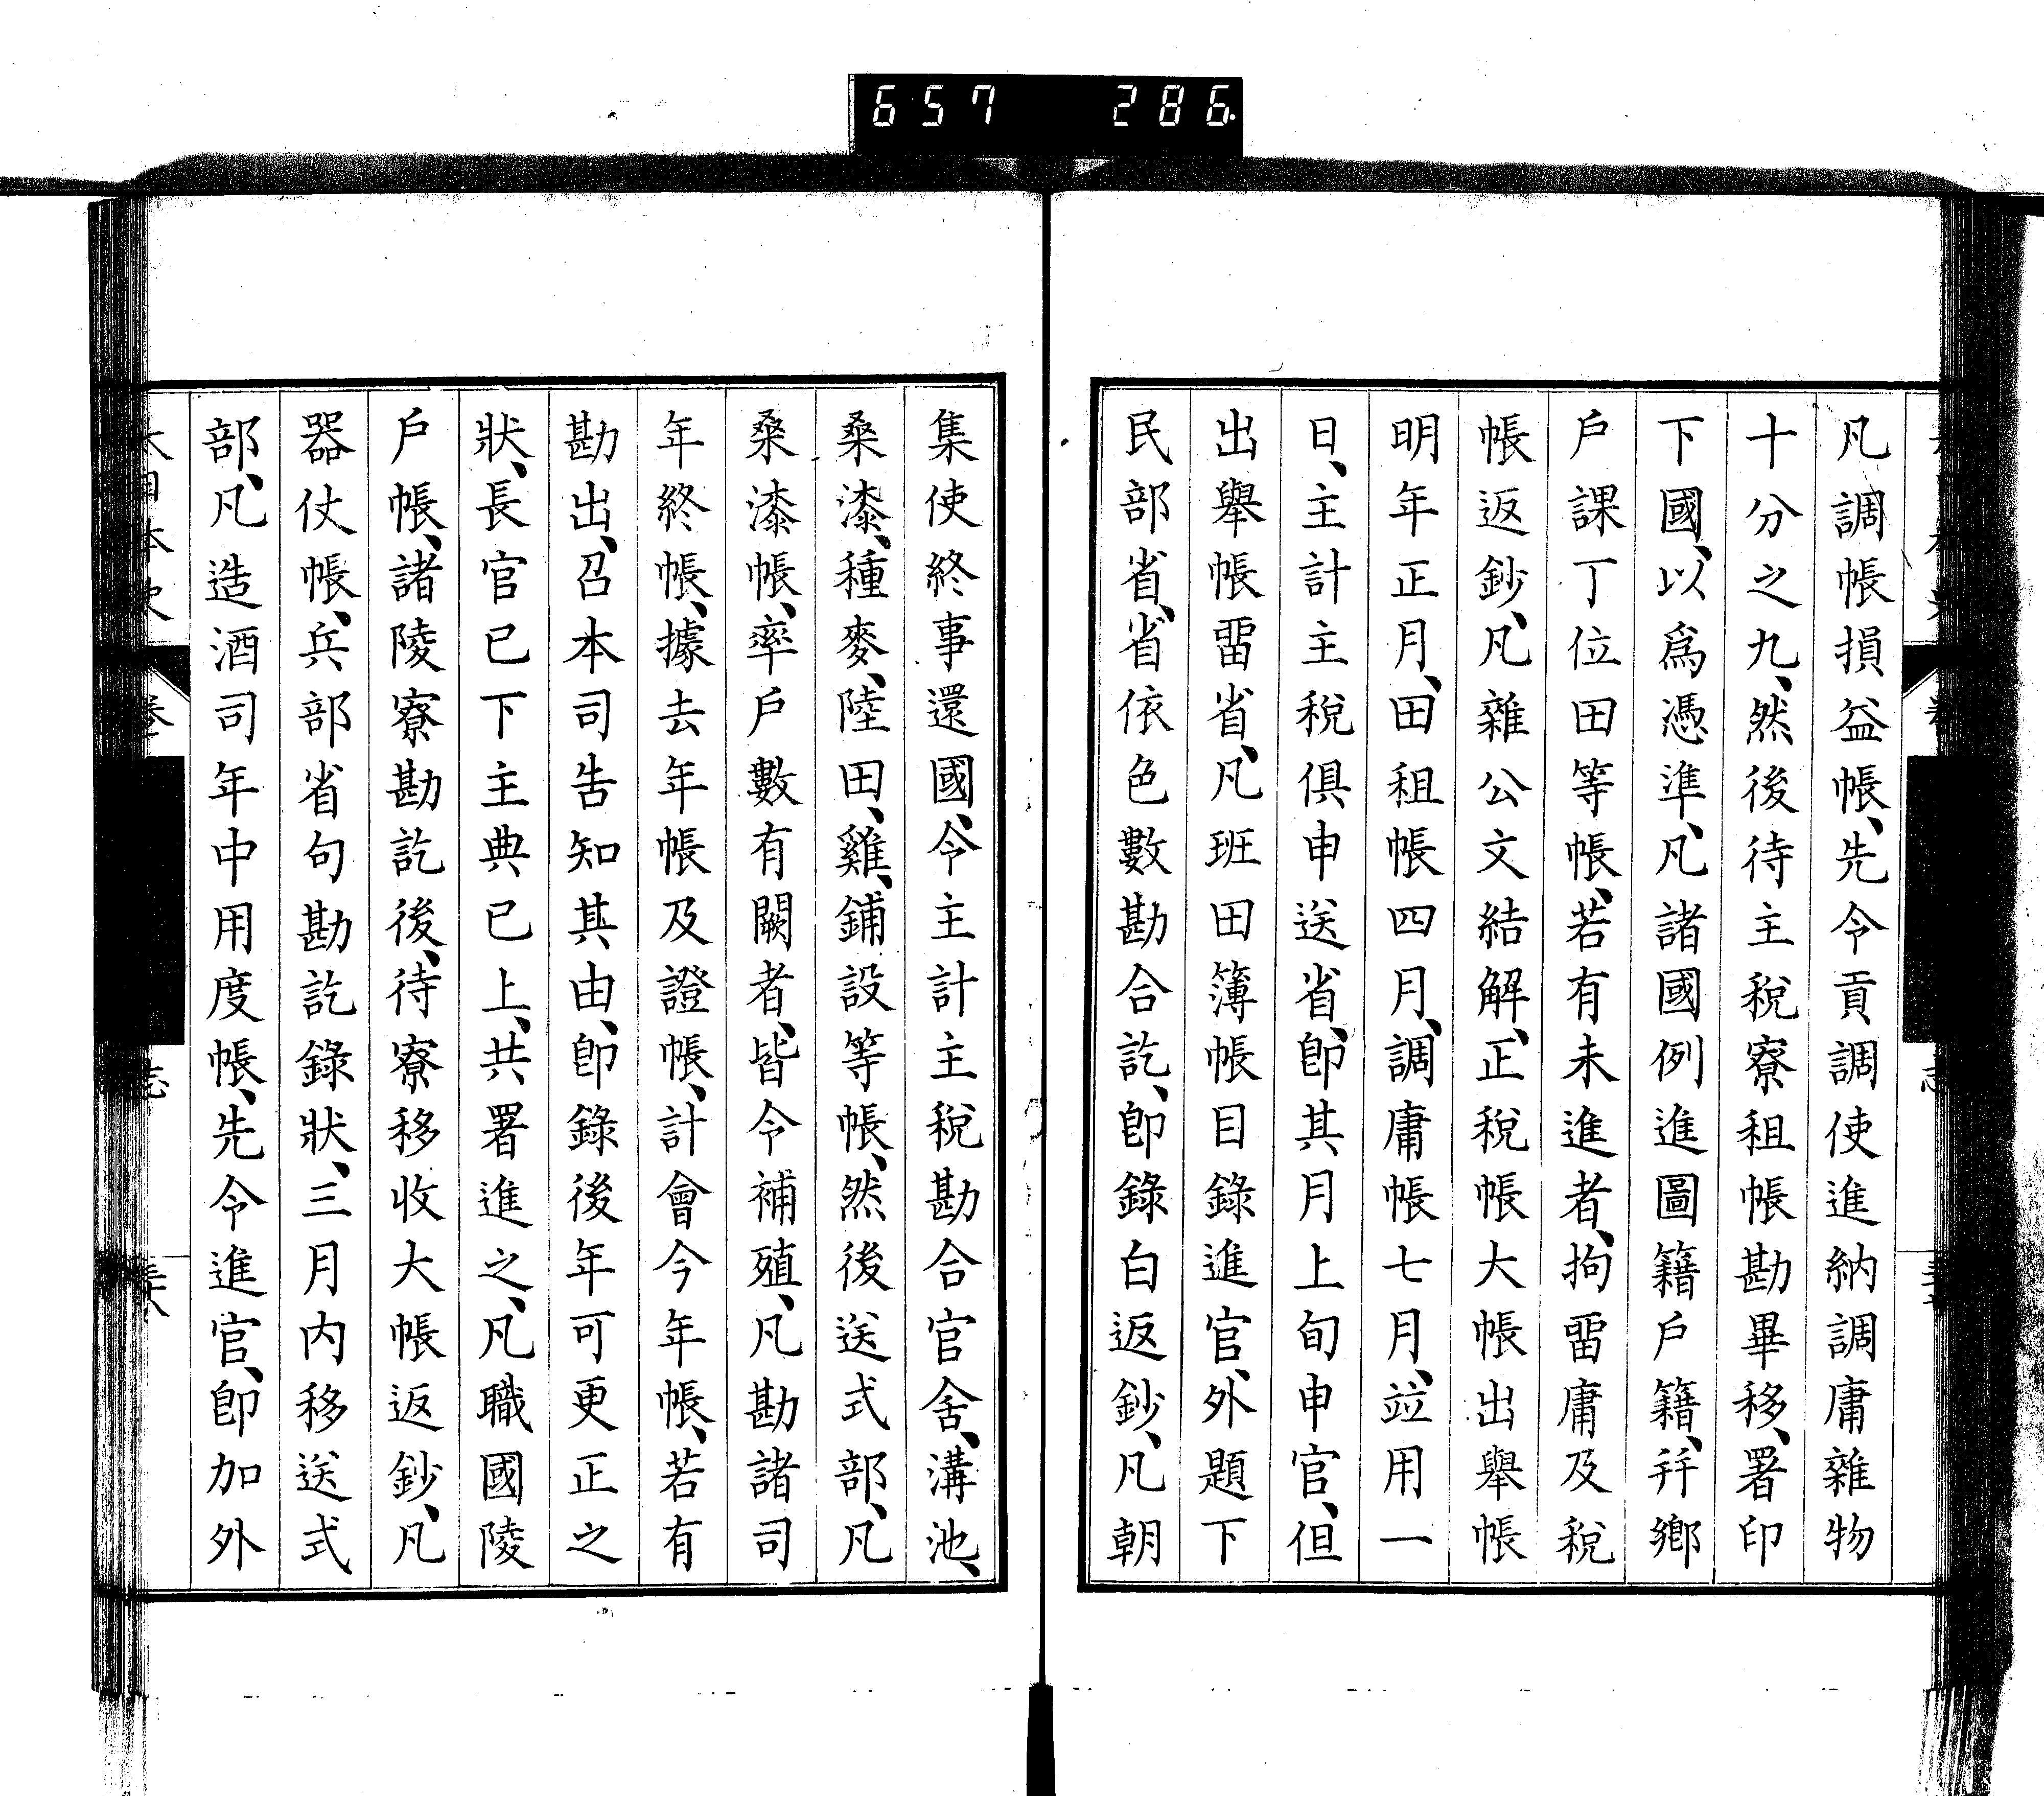 657 286
凡調帳損益帳、先令貢調使進納調庸雜物
十分之九、然後待主稅寮租帳勘畢移、署印
下國、以爲憑準、凡諸國例進圖籍戶籍、幷鄉
戶課丁位田等帳、若有未進者、拘畱庸及稅
帳返鈔、凡雜公文結解、正稅帳大帳出舉帳
明年正月、田租帳四月、調庸帳七月、竝用一
日、主計主稅俱申送省、卽其月上旬申官、但
出舉帳畱省、凡班田簿帳目錄進官、外題下
民部省、省依色數勘合訖、卽錄白返鈔、凡朝
集使終事還國、令主計主稅勘合官舍、溝池、
桑漆、種麥、陸田、雞、鋪設等帳、然後送式部、凡
桑漆帳、率戶數有闕者、皆令補殖、凡勘諸司
年終帳、據去年帳及證帳、計會今年帳、若有
勘出、召本司告知其由、卽錄後年可更正之
狀、長官已下主典已上、共署進之、凡職國陵
戶帳、諸陵寮勘訖後、待寮移收大帳返鈔、凡
器仗帳、兵部省句勘訖錄狀、三月內移送式
部、凡造酒司年中用度帳、先令進官、卽加外
大日本史 卷 志